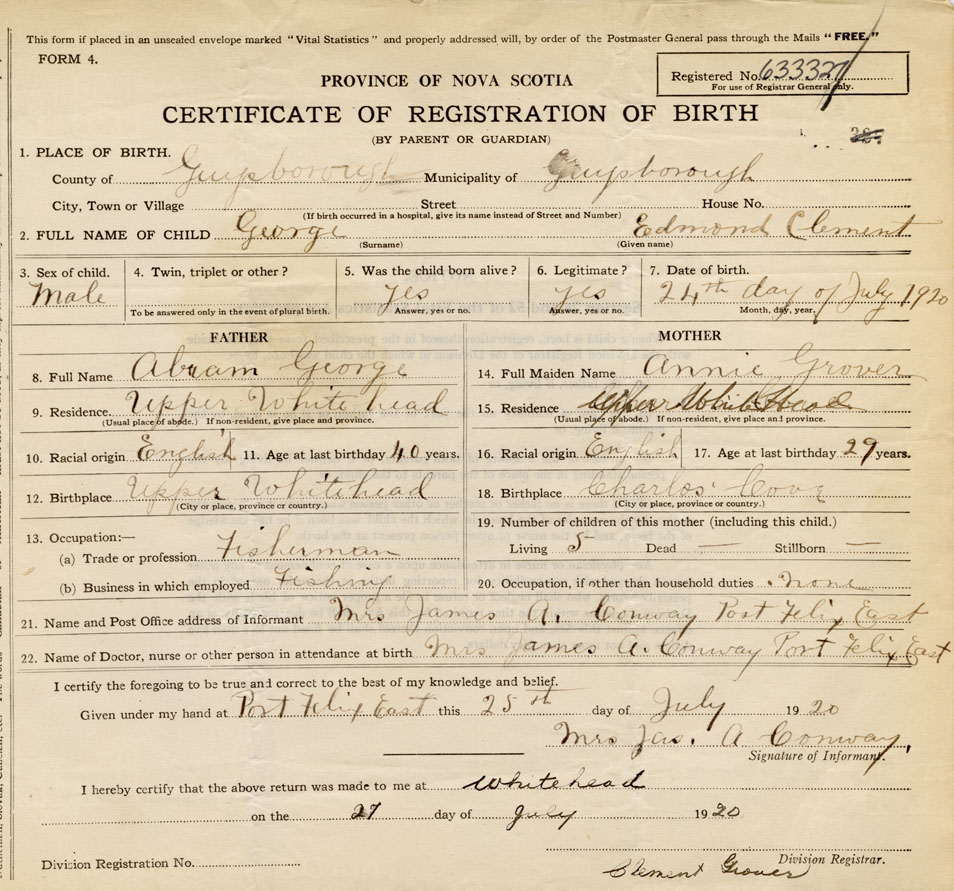 This form if placed in an unsealed envelope marked "Vital Statistics" and properly addressed will, by order of the Postmaster General pass through the Mails "FREE."
FORM 4.
Registered No. 633327
For use of Registrar General only.
PROVINCE OF NOVA SCOTIA
CERTIFICATE OF REGISTRATION OF BIRTH
(BY PARENT OR GUARDIAN)
1. PLACE OF BIRTH.
County of Guysborough Municipality of Guysborough
City, Town or Village Street House No.
(If birth occurred in a hospital, give its name instead of Street and Number)
2. FULL NAME OF CHILD George Edmond Clement
(Surname) (Given name)
3. Sex of child. 4. Twin, triplet or other? 5. Was the child born alive? 6. Legitimate? 7. Date of birth.
Male yes yes 24th day of July 1920
To be answered only in the event of plural birth. Answer, yes or no. Answer, yes or no. Month, day, year.
FATHER MOTHER
8. Full Name Abram George 14. Full Maiden Name Annie Grover
9. Residence. Upper White head 15. Residence Upper White Head
(Usual place of abode.) If non-resident, give place and province. (Usual place of abode.) If non-resident, give place and province.
10. Racial origin English 11. Age at last birthday 40 years. 16. Racial origin English 17. Age at last birthday 29 years.
12. Birthplace Upper Whitehead 18. Birthplace Charlos Cove
(City or place, province or country.) (City or place, province or country.)
13. Occupation:— 19. Number of children of this mother (including this child.)
(a) Trade or profession Fisherman Living 5 Dead — Stillborn —
(b) Business in which employed Fishing 20. Occupation, if other than household duties none
21. Name and Post Office address of Informant Mrs James A. Conway Post Felix East
22. Name of Doctor, nurse or other person in attendance at birth Mrs James A. Conway Port Felix East
I certify the foregoing to be true and correct to the best of my knowledge and belief.
Given under my hand at Port Felix East this 25th day of July 1920
Mrs Jas. A Conway,
Signature of Informant.
I hereby certify that the above return was made to me at Whitehead
on the 27 day of July 1920
Division Registrar.
Division Registration No.
Clement Grover